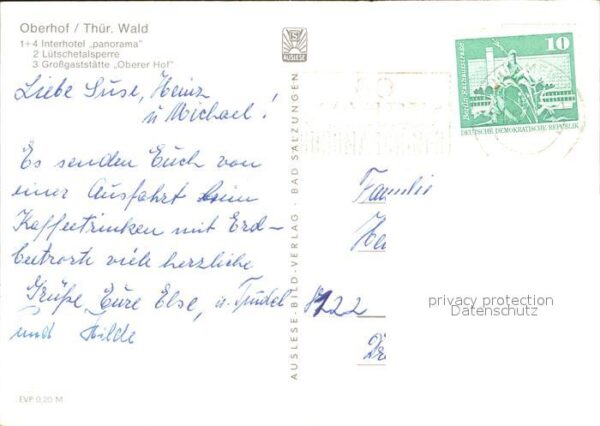 Oberhof / Thür. Wald
1+4 Interhotel „panorama"
2 Lütschetalsperre
3 Großgaststätte „Oberer Hof"
AUSLESE
Liebe Suse, Heinz
u Michael!
Es senden Euch von
einer Ausfahrt beim
Kaffeetrinken mit Erd-
beertorte viele herzliche
Grüße Eure Else, u. Trudel
und Hilde
EVP 0,20 M
AUSLESE-BILD-VERLAG · BAD SALZUNGEN
10
DEUTSCHE DEMOKRATISCHE REPUBLIK
Familie
He
8122
privacy protection
Datenschutz